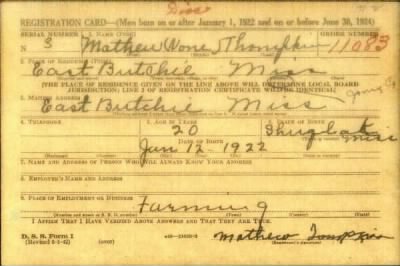 Disc
REGISTRATION CARD—(Men born on or after January 1, 1922 and on or before June 30, 1924)
SERIAL NUMBER 1. NAME (Print) ORDER NUMBER
3 Mathew (None) Thompkin 11083
2. PLACE OF RESIDENCE (Print)
East Butchie Miss
(THE PLACE OF RESIDENCE GIVEN ON THE LINE ABOVE WILL DETERMINE LOCAL BOARD
JURISDICTION; LINE 2 OF REGISTRATION CERTIFICATE WILL BE IDENTICAL)
3. MAILING ADDRESS
East Butchie Miss
4. TELEPHONE 5. AGE IN YEARS 6. PLACE OF BIRTH
20
DATE OF BIRTH
Jun 12-1922 Miss
7. NAME AND ADDRESS OF PERSON WHO WILL ALWAYS KNOW YOUR ADDRESS
8. EMPLOYER'S NAME AND ADDRESS
9. PLACE OF EMPLOYMENT OR BUSINESS
Farming
I AFFIRM THAT I HAVE VERIFIED ABOVE ANSWERS AND THAT THEY ARE TRUE.
D. S. S. Form 1
(over)
Mathew Tompkin